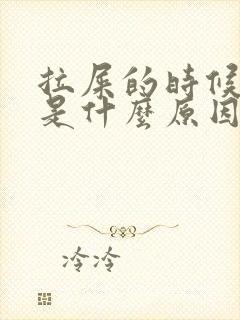 拉屎的時候
是什麼原因
冷冷